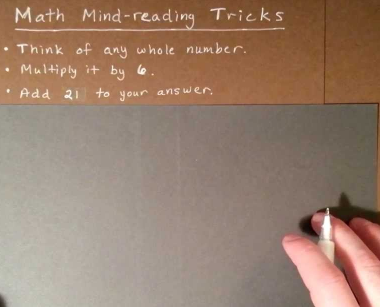 Math Mind-reading Tricks
• Think of any whole number.
• Multiply it by 6.
• Add 21 to your answer.